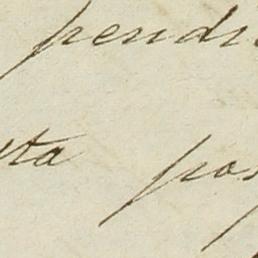 pendi
sta pos